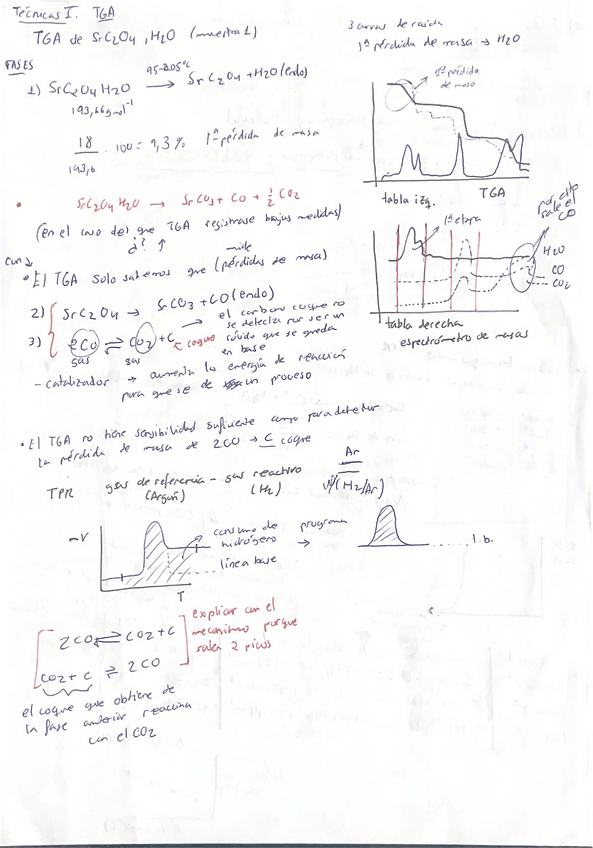 Técnicas I. TGA
TGA de SrC2O4 · H2O (muestra 1)
3 curvas de caída
1ª pérdida de masa → H2O
FASES
1) SrC2O4 H2O 95-205ºC → SrC2O4 + H2O (endo)
193,66 g mol⁻¹
18/193,6 · 100 = 9,3% 1ª pérdida de masa
1ª pérdida de masa
tabla izq. TGA
• SrC2O4 H2O → SrCO3 + CO + ½ CO2
(en el caso del que TGA registrase bajas medidas)
¿? ↑
mide
• El TGA solo sabemos que (pérdidas de masa)
1ª etapa
por esto sale el CO
H2O
CO
CO2
tabla derecha
espectrómetro de masas
2) SrC2O4 → SrCO3 + CO (endo)
3) 2CO ⇌ CO2 + C ← coque
gas gas
→ el carbono coque no se detecta por ser un sólido que se queda en base
- catalizador → aumenta la energía de reacción
para que se de un proceso
• El TGA no tiene sensibilidad suficiente como para detectar
la pérdida de masa de 2CO → C coque
TPR gas de referencia - gas reactivo
(Argón) (H2)
Ar
(H2/Ar)
-V
consumo de hidrógeno
línea base
T
programa →
l.b.
2CO ⇌ CO2 + C
CO2 + C ⇌ 2CO
explicar con el mecanismo porque salen 2 picos
el coque que obtiene de
la fase anterior reacciona
con el CO2